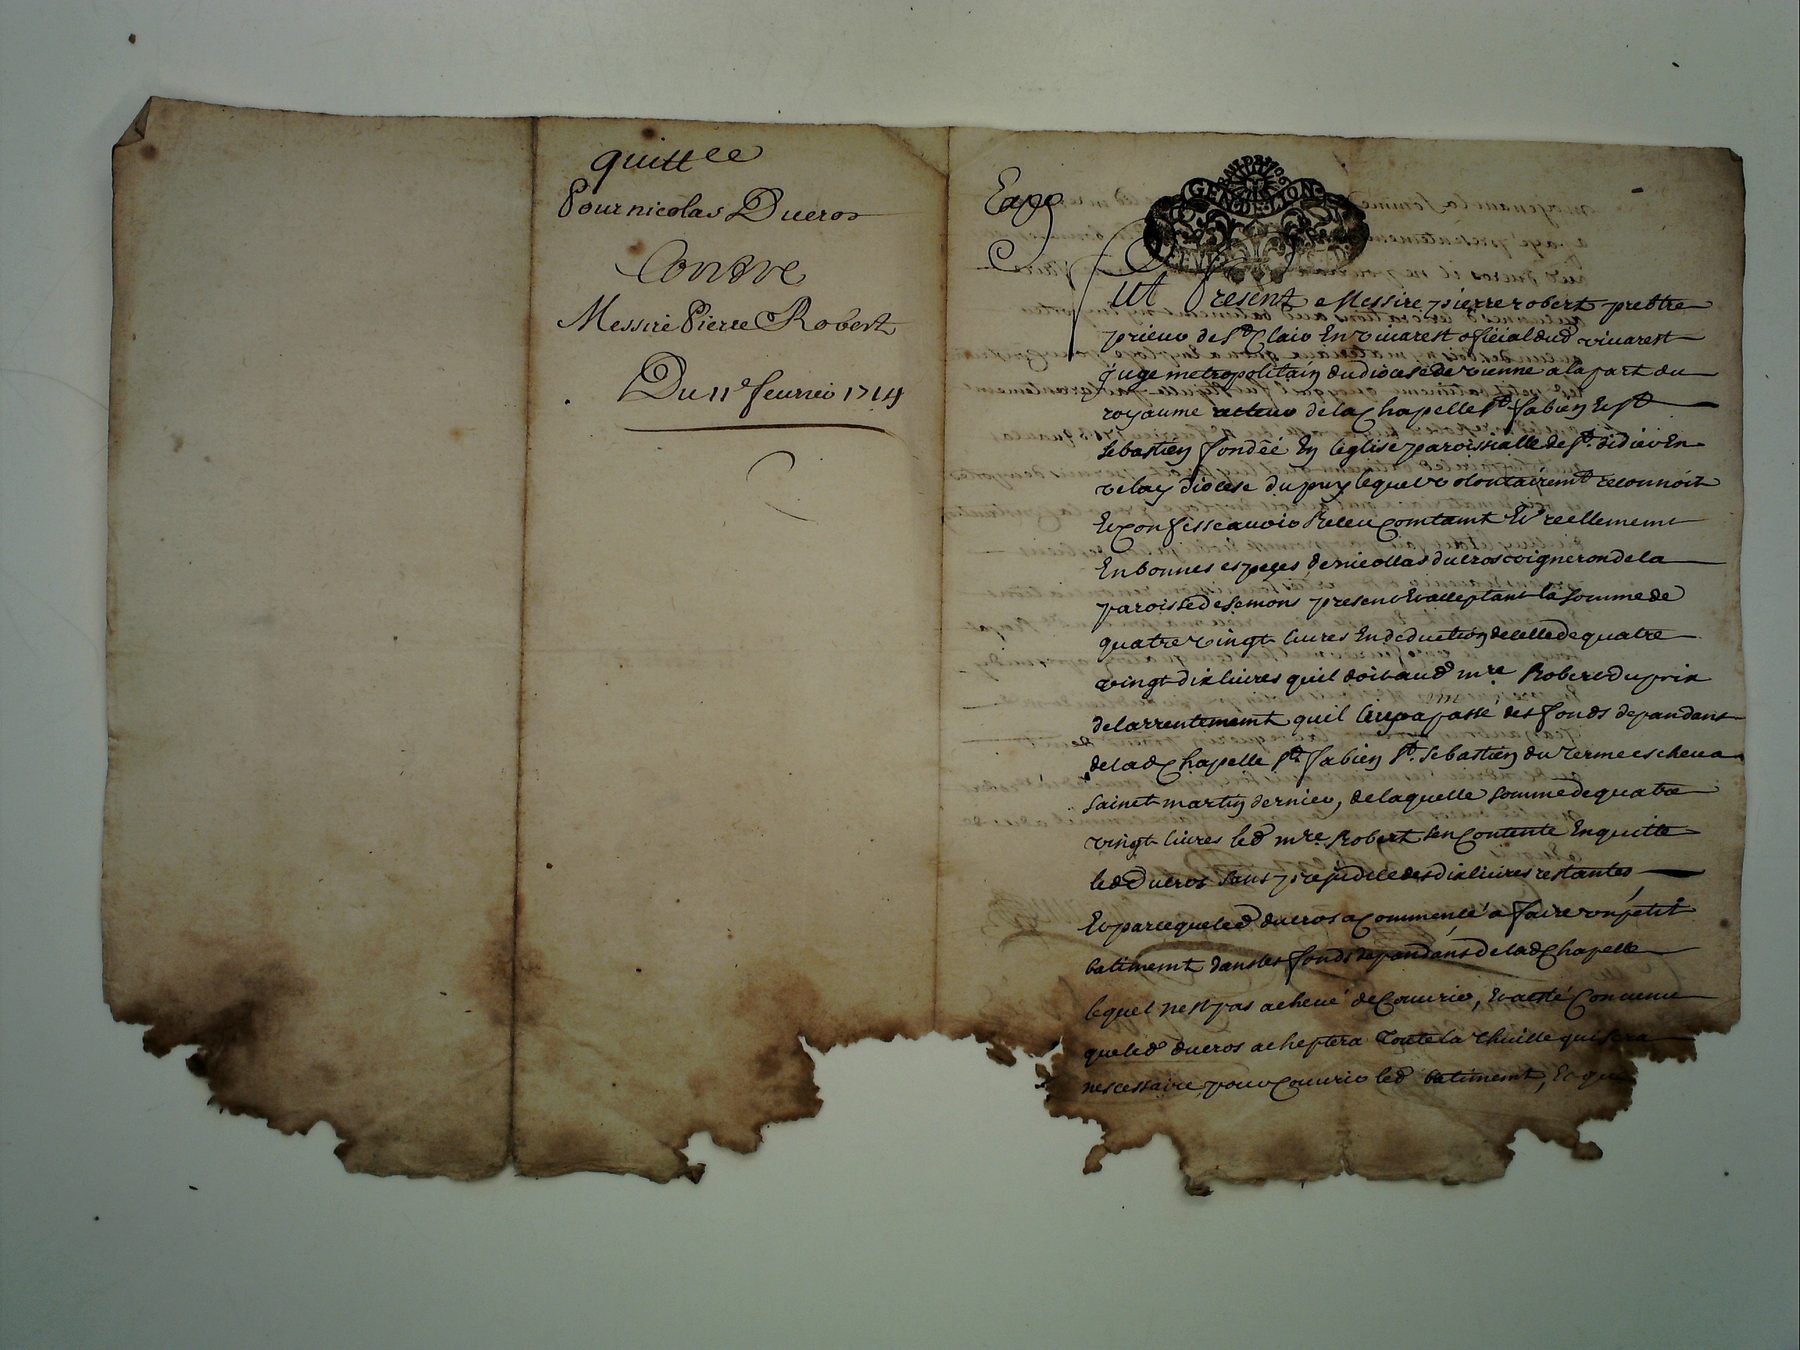 quittee
Pour nicolas Ducros
Contre
Messire Pierre Robert
Du 11e feurier 1714
Expp
GENERATION
Fut Present Messire pierre robert prebtre
prieur de St Clair En viuarest oficial dud viuarest
Juge metropolitain du diocese de vienne a la part du
royaume recteur de la Chapelle St fabien Et St
sebastien fondéé En leglise paroissialle de St didier En
velay diocese du puy lequel volontairemt reconnoit
Et Confesse auoir Receu Comtamt Et reellement
En bonnes especes de nicollas ducros vigneron de la
paroisse de semons present Et acceptant la somme de
quatre vingt liures En deduction de celle de quatre
vingt dix liures quil doit aud mre Robert du prix
de larrentement quil luy a passé des fonds depandans
de lad Chapelle St fabien St sebastien du terme escheu a
sainct martin dernier, de laquelle somme de quatre
vingt liures led mre Robert sen Contente En quitte
led Ducros sans prejudice des dix liures restantes
Et parce que led ducros a Commencé a faire un petit
batiment dans les fonds depandans de lad Chapelle
lequel nest pas acheué de Couurir, Et a esté Conuenu
que led ducros acheptera toute la thuille qui sera
nescessaire pour Couurir led batiment, Et que